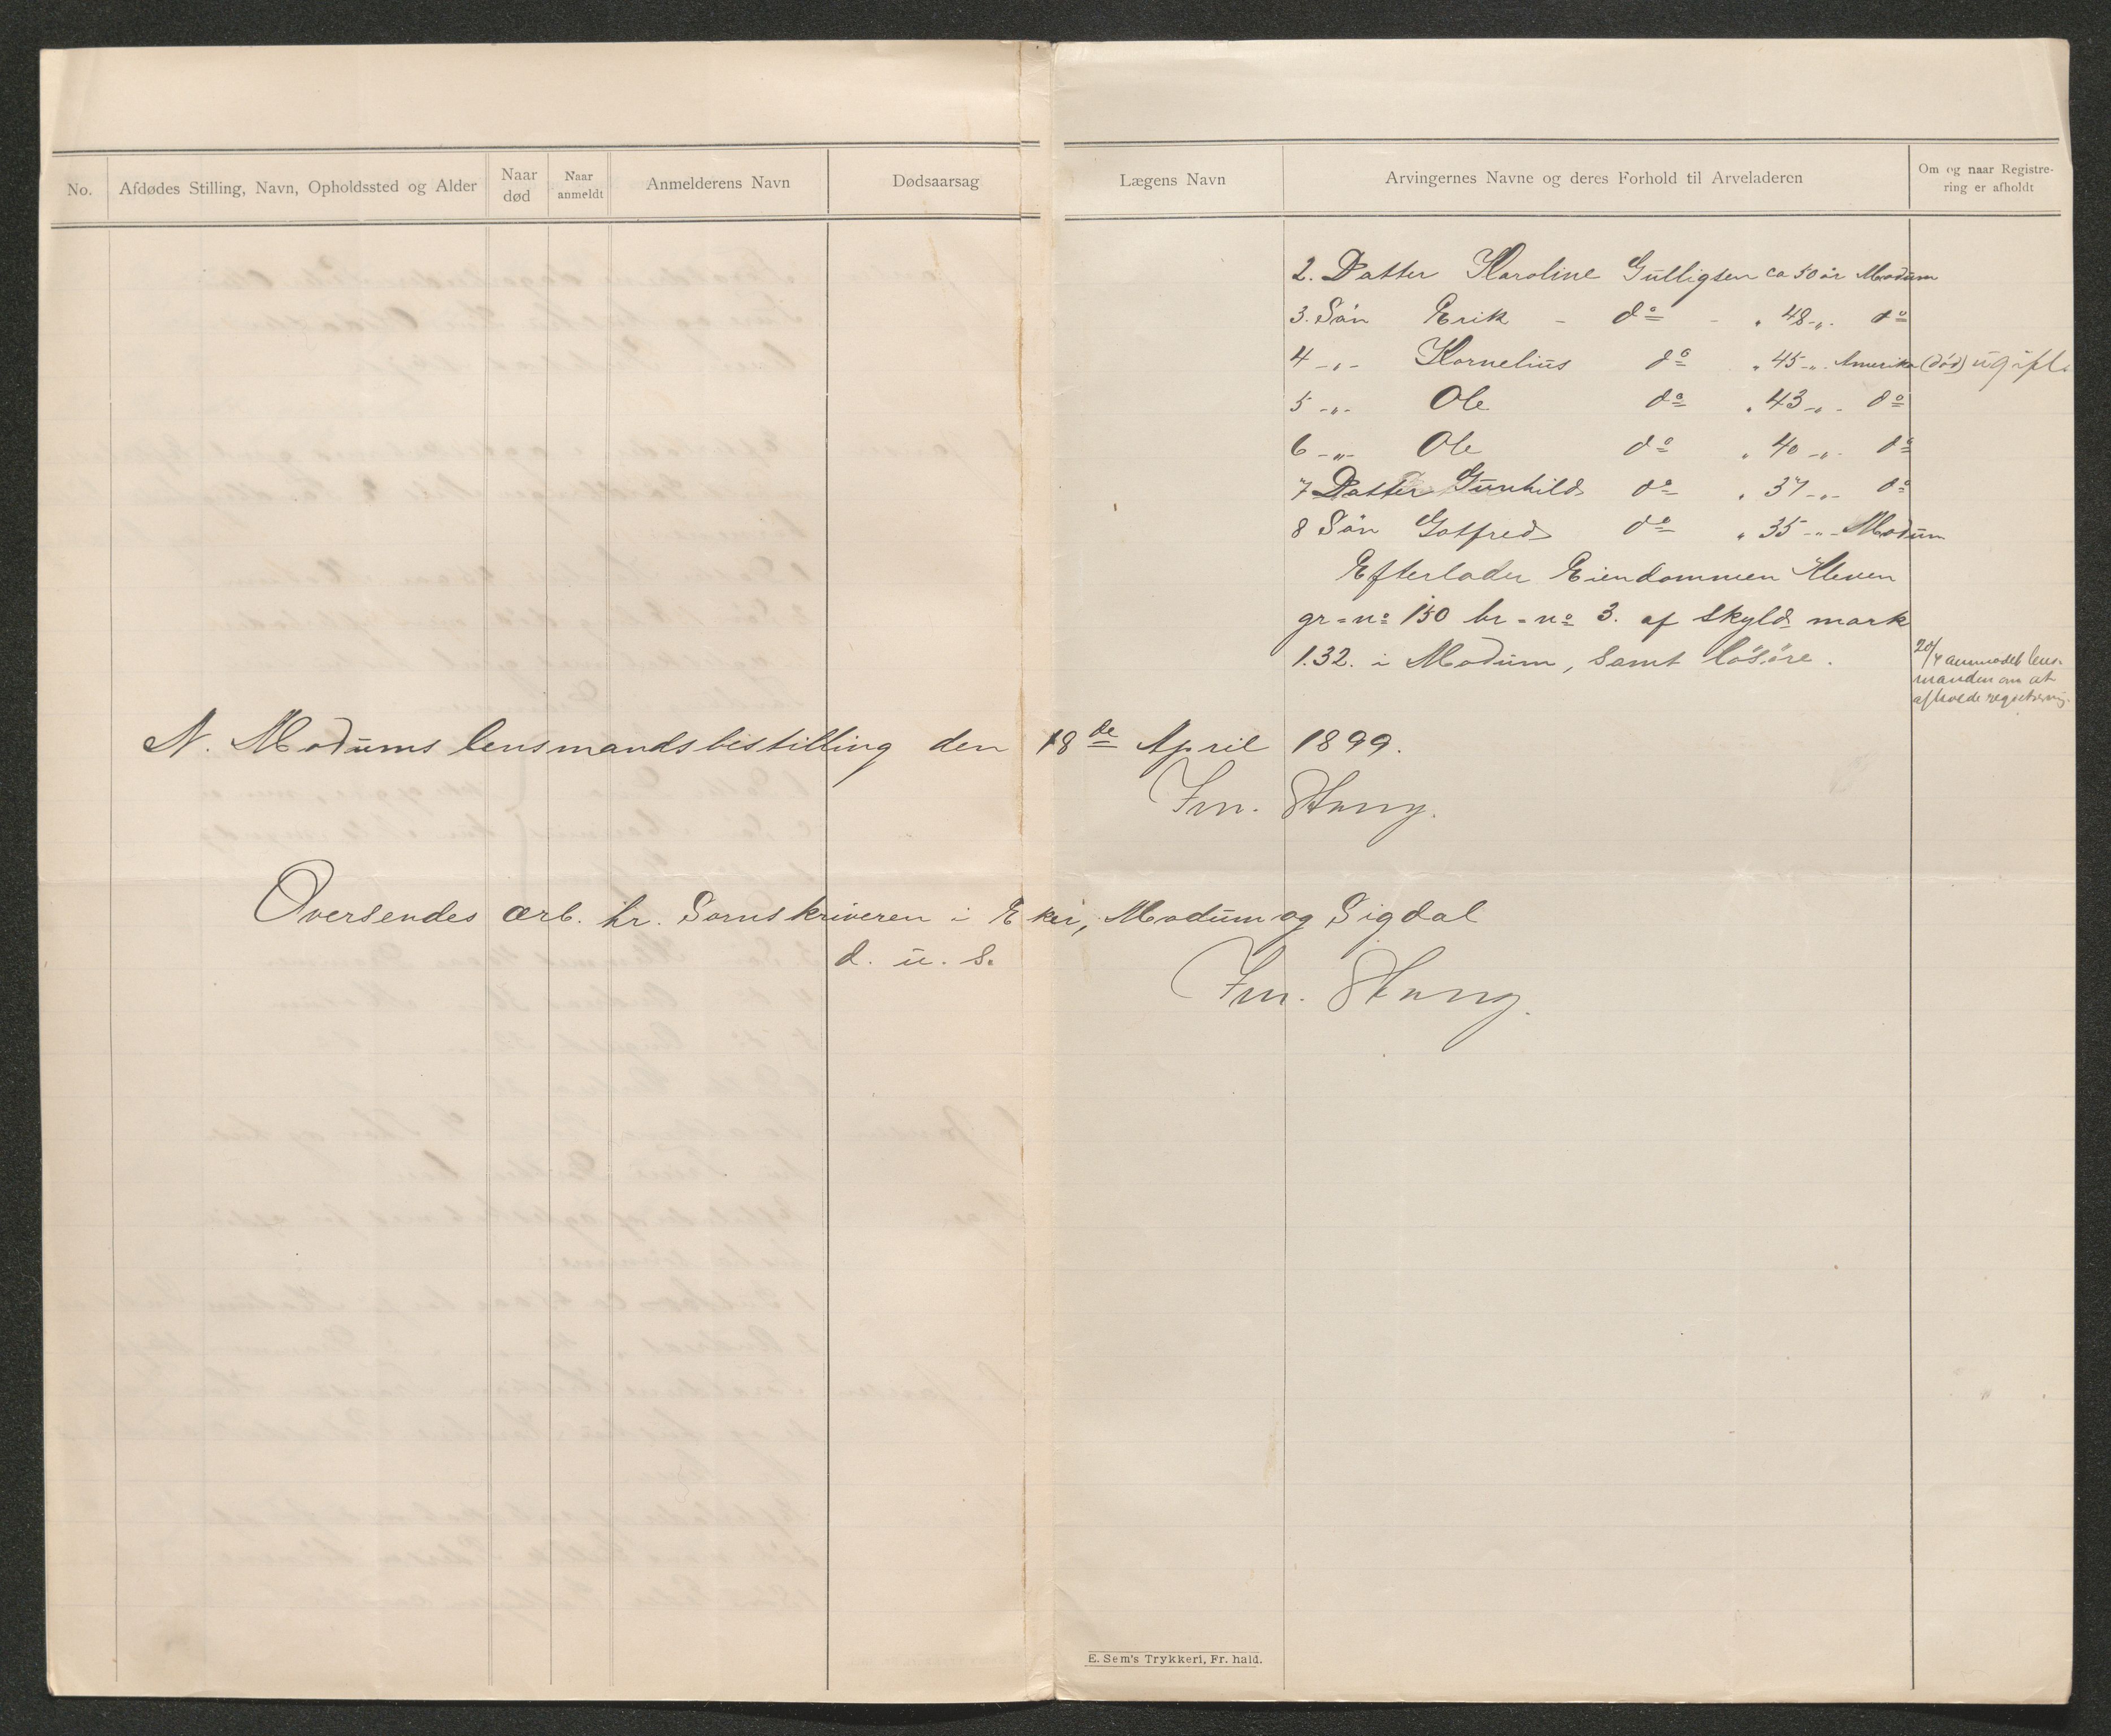 No. Afdødes Stilling, Navn, Opholdssted og Alder Naar død Naar anmeldt Anmelderens Navn Dødsaarsag Lægens Navn Arvingernes Navne og deres Forhold til Arveladeren Om og naar Registrering er afholdt
2. Datter Karoline Gulligsen ca 50 år Modum
3. Søn Erik - do - " 48 -"- do
4 -"- Kornelius do " 45 -"- Amerika (død) ugift
5 -"- Ole do " 43 -"- do
6 -"- Ole do " 40 -"- do
7 Datter Gunhild do " 37 -"- do
8 Søn Gotfred do " 35 -"- Modum
Efterlader Eiendommen Kleven
gr-no 150 br-no 3. af skyld mark
1.32. i Modum, samt løsøre.
20/4 anmodet lens-
manden om at
afholde registrering.
N. Modums lensmandsbestilling den 18de April 1899.
Fm. Stang.
Oversendes ærb. hr. Sorenskriveren i Eker, Modum og Sigdal
d. u. s.
Fm. Stang.
E. Sem's Trykkeri, Fr. hald.